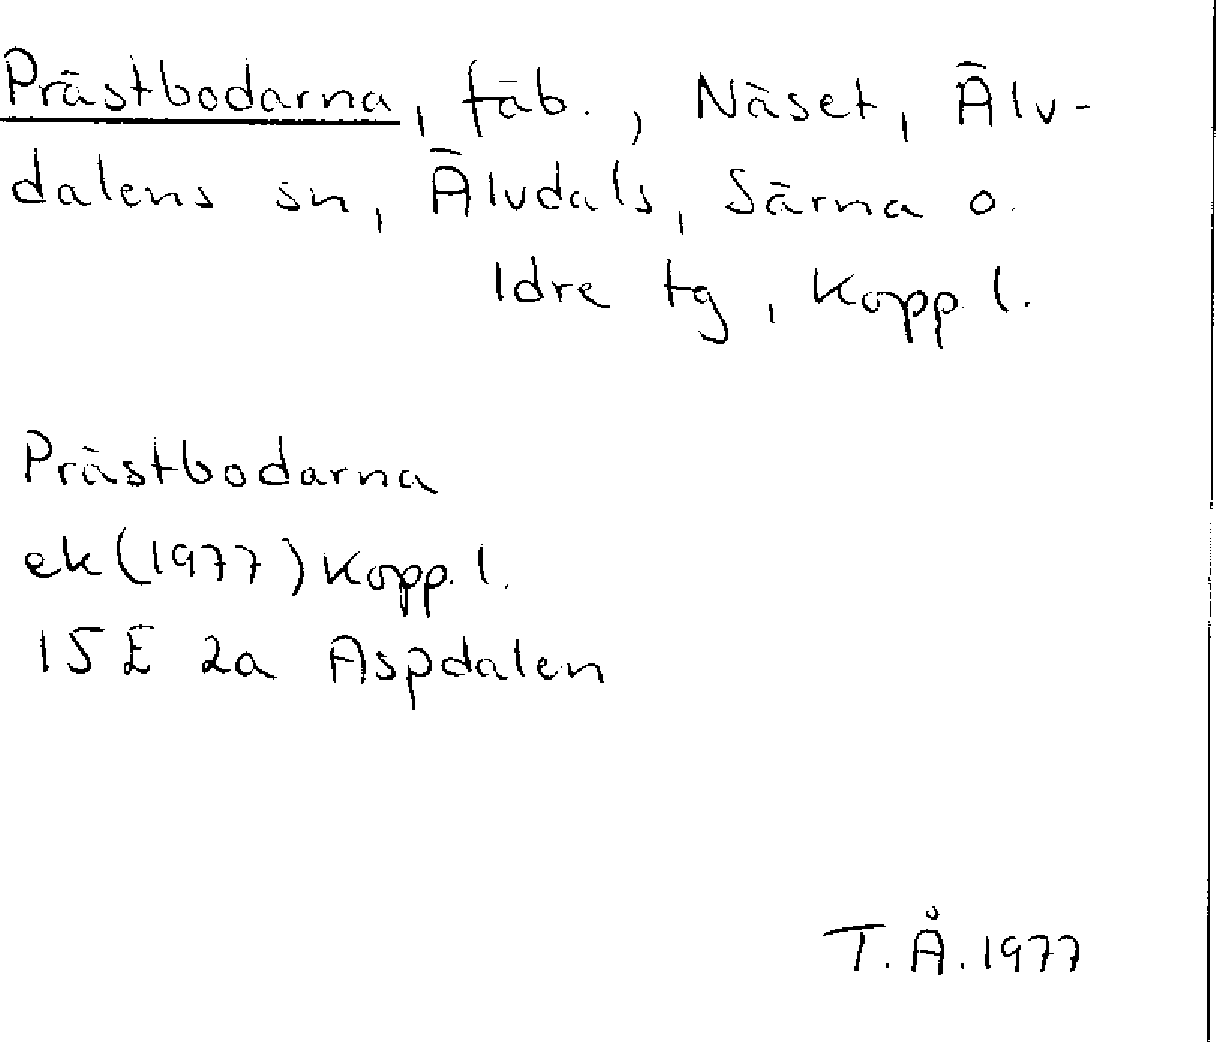 Prästbodarna, fäb., Näset, Älv-
dalens sn, Älvdals, Särna o.
Idre tg, Kopp. l.
Prästbodarna
ek (1977) Kopp. l.
15 E 2a Aspdalen
T.Å. 1977